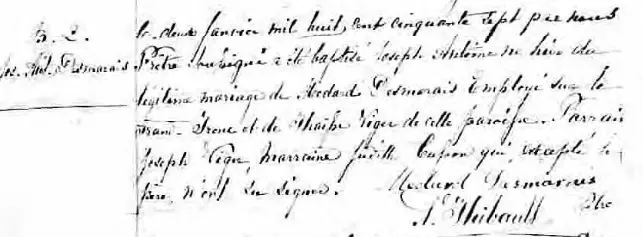 B. 2.
Jos. Ant. Desmarais
le deux Janvier mil huit cent cinquante sept par nous
Prêtre soussigné a été baptisé Joseph Antoine né hier du
légitime mariage de Médard Desmarais Employé sur le
et de Viger de cette paroisse. Parrain
Joseph Viger, Marraine Judith Cupon qui, excepté le
père, n'ont su signer. Medard Desmarais
Thibault Ptre